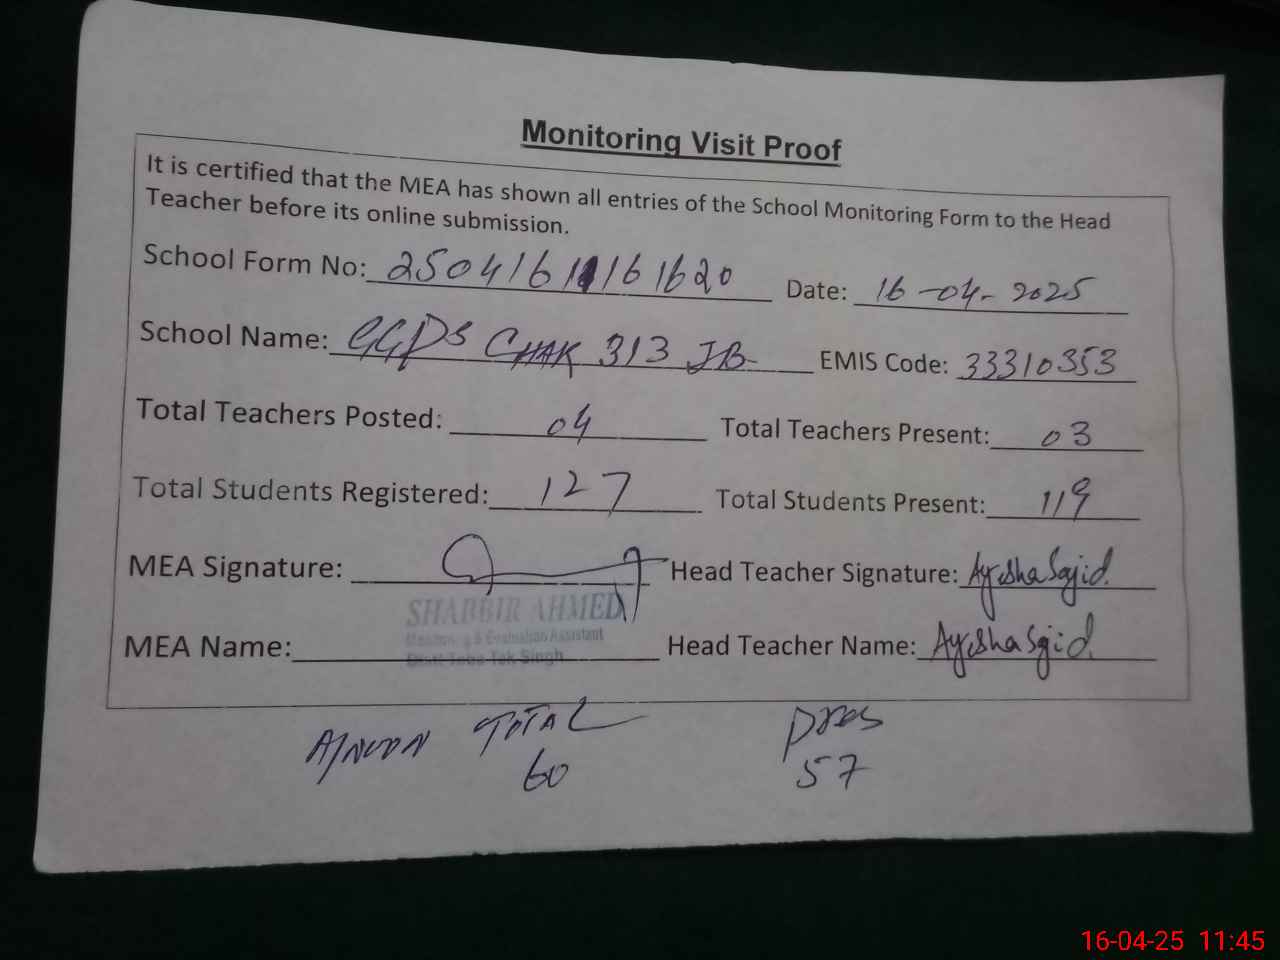 Monitoring Visit Proof
It is certified that the MEA has shown all entries of the School Monitoring Form to the Head
Teacher before its online submission.
School Form No: 2504161161620 Date: 16-04-2025
School Name: GGPS CHAK 313 JB EMIS Code: 33310353
Total Teachers Posted: 04 Total Teachers Present: 03
Total Students Registered: 127 Total Students Present: 119
MEA Signature: Head Teacher Signature: Ayesha Sajid.
SHABBIR AHMED
Monitoring & Evaluation Assistant
Distt Toba Tek Singh
MEA Name: Head Teacher Name: Ayesha Sajid.
TOTAL Pres
60 57
16-04-25 11:45